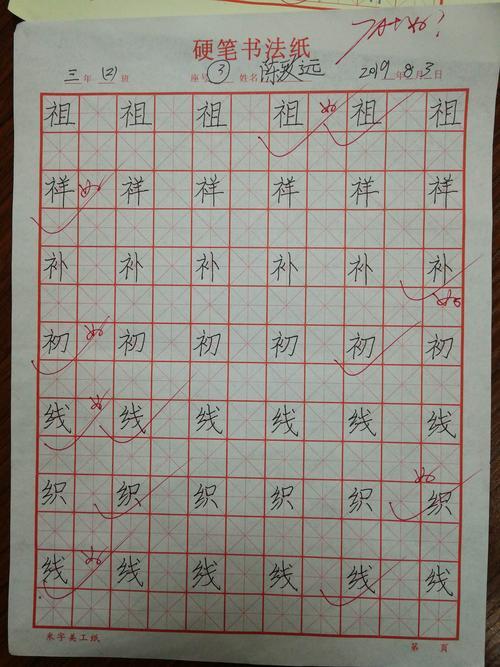 硬笔书法纸
三年(2)班 座号③ 姓名陈 远 2019年8月3日
祖 祖 祖 祖 祖 祖
祥 祥 祥 祥 祥 祥
补 补 补 补 补 补
初 初 初 初 初 初
线 线 线 线 线 线
织 织 织 织 织 织
线 线 线 线 线 线
米字美工纸 第 页